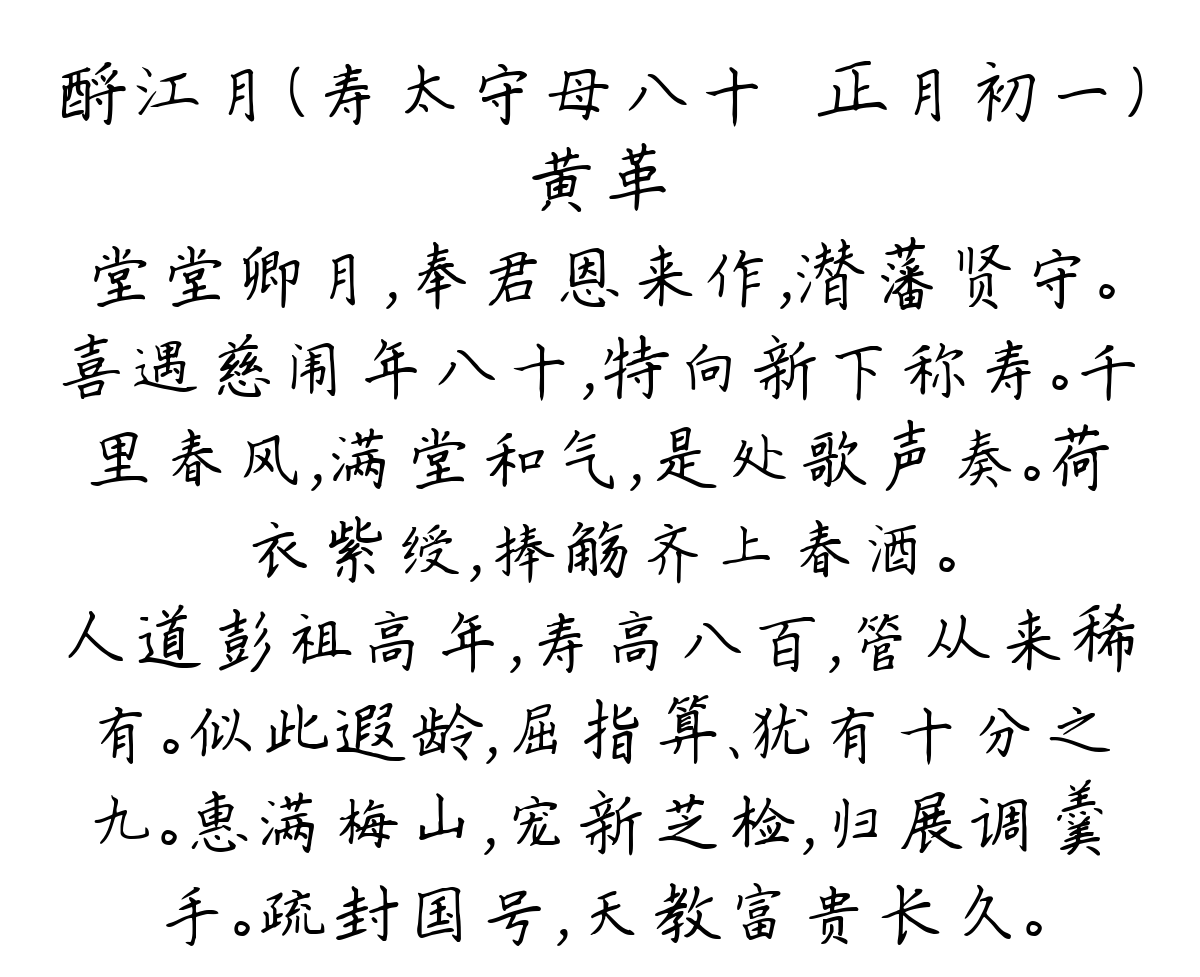 酹江月(寿太守母八十 正月初一)
黄革
堂堂卿月,奉君恩来作,潜藩贤守。
喜遇慈闱年八十,特向新下称寿。千
里春风,满堂和气,是处歌声奏。荷
衣紫绶,捧觞齐上春酒。
人道彭祖高年,寿高八百,管从来稀
有。似此遐龄,屈指算、犹有十分之
九。惠满梅山,宠新芝检,归展调羹
手。疏封国号,天教富贵长久。